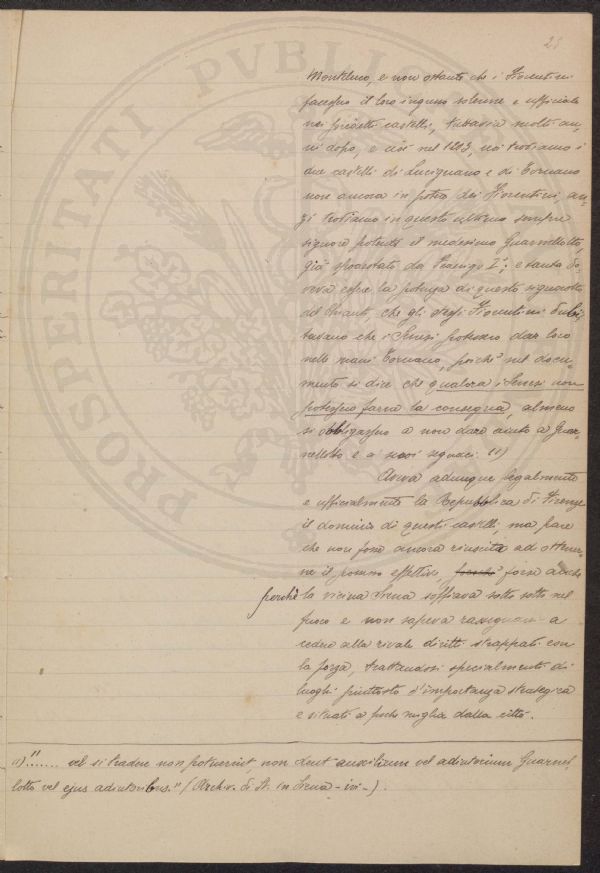 28
Monteluco, e non ostante che i Fiorentini
facessero il loro ingresso solenne e ufficiale
nei predetti castelli, tuttavia molti an-
ni dopo, e cioè nel 1203, noi troviamo i
due castelli di Lucignano e di Tornano
non ancora in potere dei Fiorentini, an-
zi troviamo in questo ultimo sempre
signore potente il medesimo Guarnellotto,
già spodestato da I°; e tanta do-
veva essere la potenza di questo signorotto
del Chianti, che gli stessi Fiorentini dubi-
tavano che i Senesi potessero dar loro
nelle mani Tornano, poichè nel docu-
mento si dice che qualora i Senesi non
potessero farne la consegna, almeno
si obbligassero a non dare aiuto a Guar-
nellotto e a' suoi seguaci. (1)
Aveva adunque legalmente
e ufficialmente la Repubblica di Firenze
il dominio di questi castelli, ma pare
che non fosse ancora riuscita ad ottener-
ne il possesso effettivo, forse anche
perchè la vicina Siena soffiava sotto sotto nel
fuoco e non sapeva rassegnarsi a
cedere alla rivale diritti strappati con
la forza, trattandosi specialmente di
luoghi piuttosto d'importanza strategica
e situati a poche miglia dalla città.
(1) "...... vel si tradere non potuerint, non dent auxilium vel adiutorium Guarnel-
lotto vel ejus adiutoribus." (Archiv. di St. in Siena - ivi -).
PROSPERITATI PVBLICAE